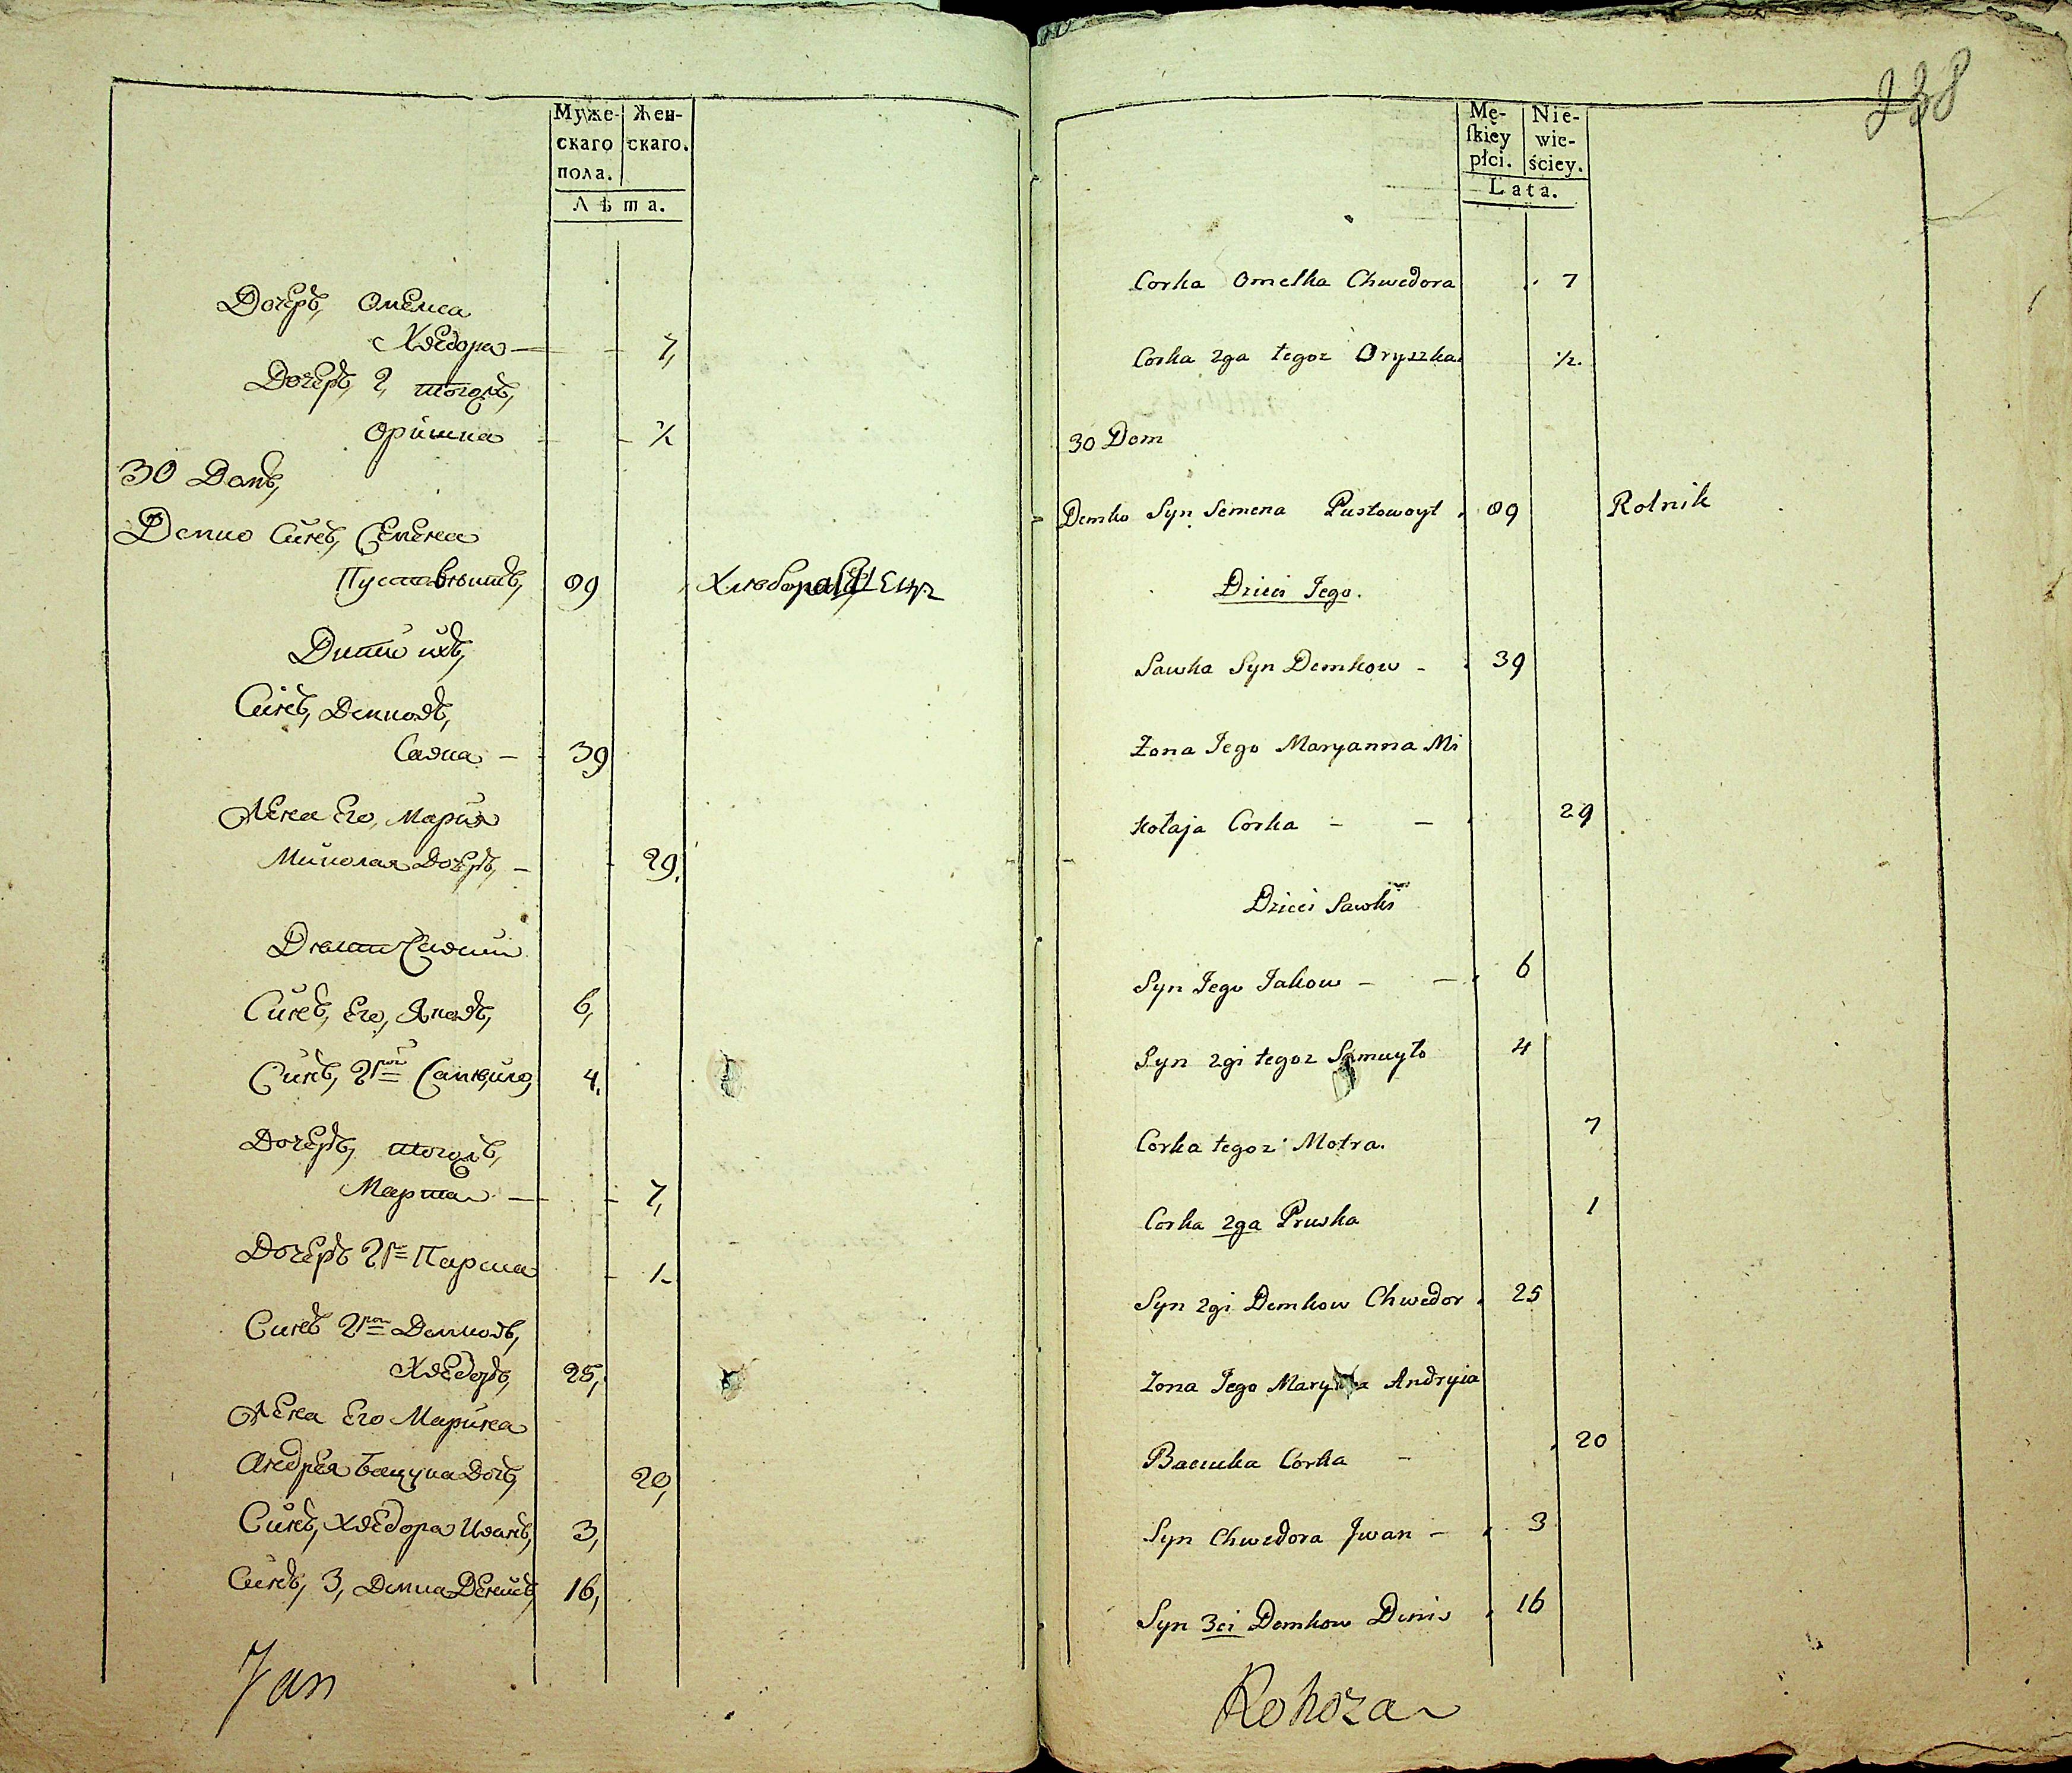 Муже- Жен-
скаго скаго.
пола.
Лѣта.
Дочеръ Омелка
Хведора — 7,
Дочеръ 2, тогожъ,
Оришка - ½
30 Домъ,
Демко Синъ, Семена
Пустовоитъ, 89 Хлеборобецъ
Дити ихъ,
Синъ, Демковъ,
Савка — 39
Жена Его, Мария
Миколая Дочеръ, — 29.
Дѣти Савки
Синъ, Его, Яковъ, 6,
Синъ, 2гой Самуило, 4.
Дочеръ, тогожъ,
Марта — 7,
Дочеръ 2га Параска 1.
Синъ 2гой Демковъ,
Хведоръ, 25,
Жена Его Марина
Андрея Бацука Дочъ, 20,
Синъ, Хведора Иванъ, 3,
Синъ, 3, Демка Денисъ, 16,
Jan
238
Mę- Nie-
ſkiey wie-
płci. ściey.
Lata.
Corka Omelka Chwedora 7
Corka 2ga tegoz Oryszka ½.
30 Dom
Demko Syn Semena Pustowoyt 89 Rolnik
Dzieci Jego.
Sawka Syn Demkow - 39
Zona Jego Maryanna Mi
kołaja Corka - - 29
Dzieci Sawki
Syn Jego Jakow - - 6
Syn 2gi tegoz Samuyło 4
Corka tegoz Motra. 7
Corka 2ga Pruska 1
Syn 2gi Demkow Chwedor 25
Zona Jego Maryna Andryia
Bacuka Corka - 20
Syn Chwedora Jwan - 3
Syn 3ci Demkow Denis 16
Rohoza